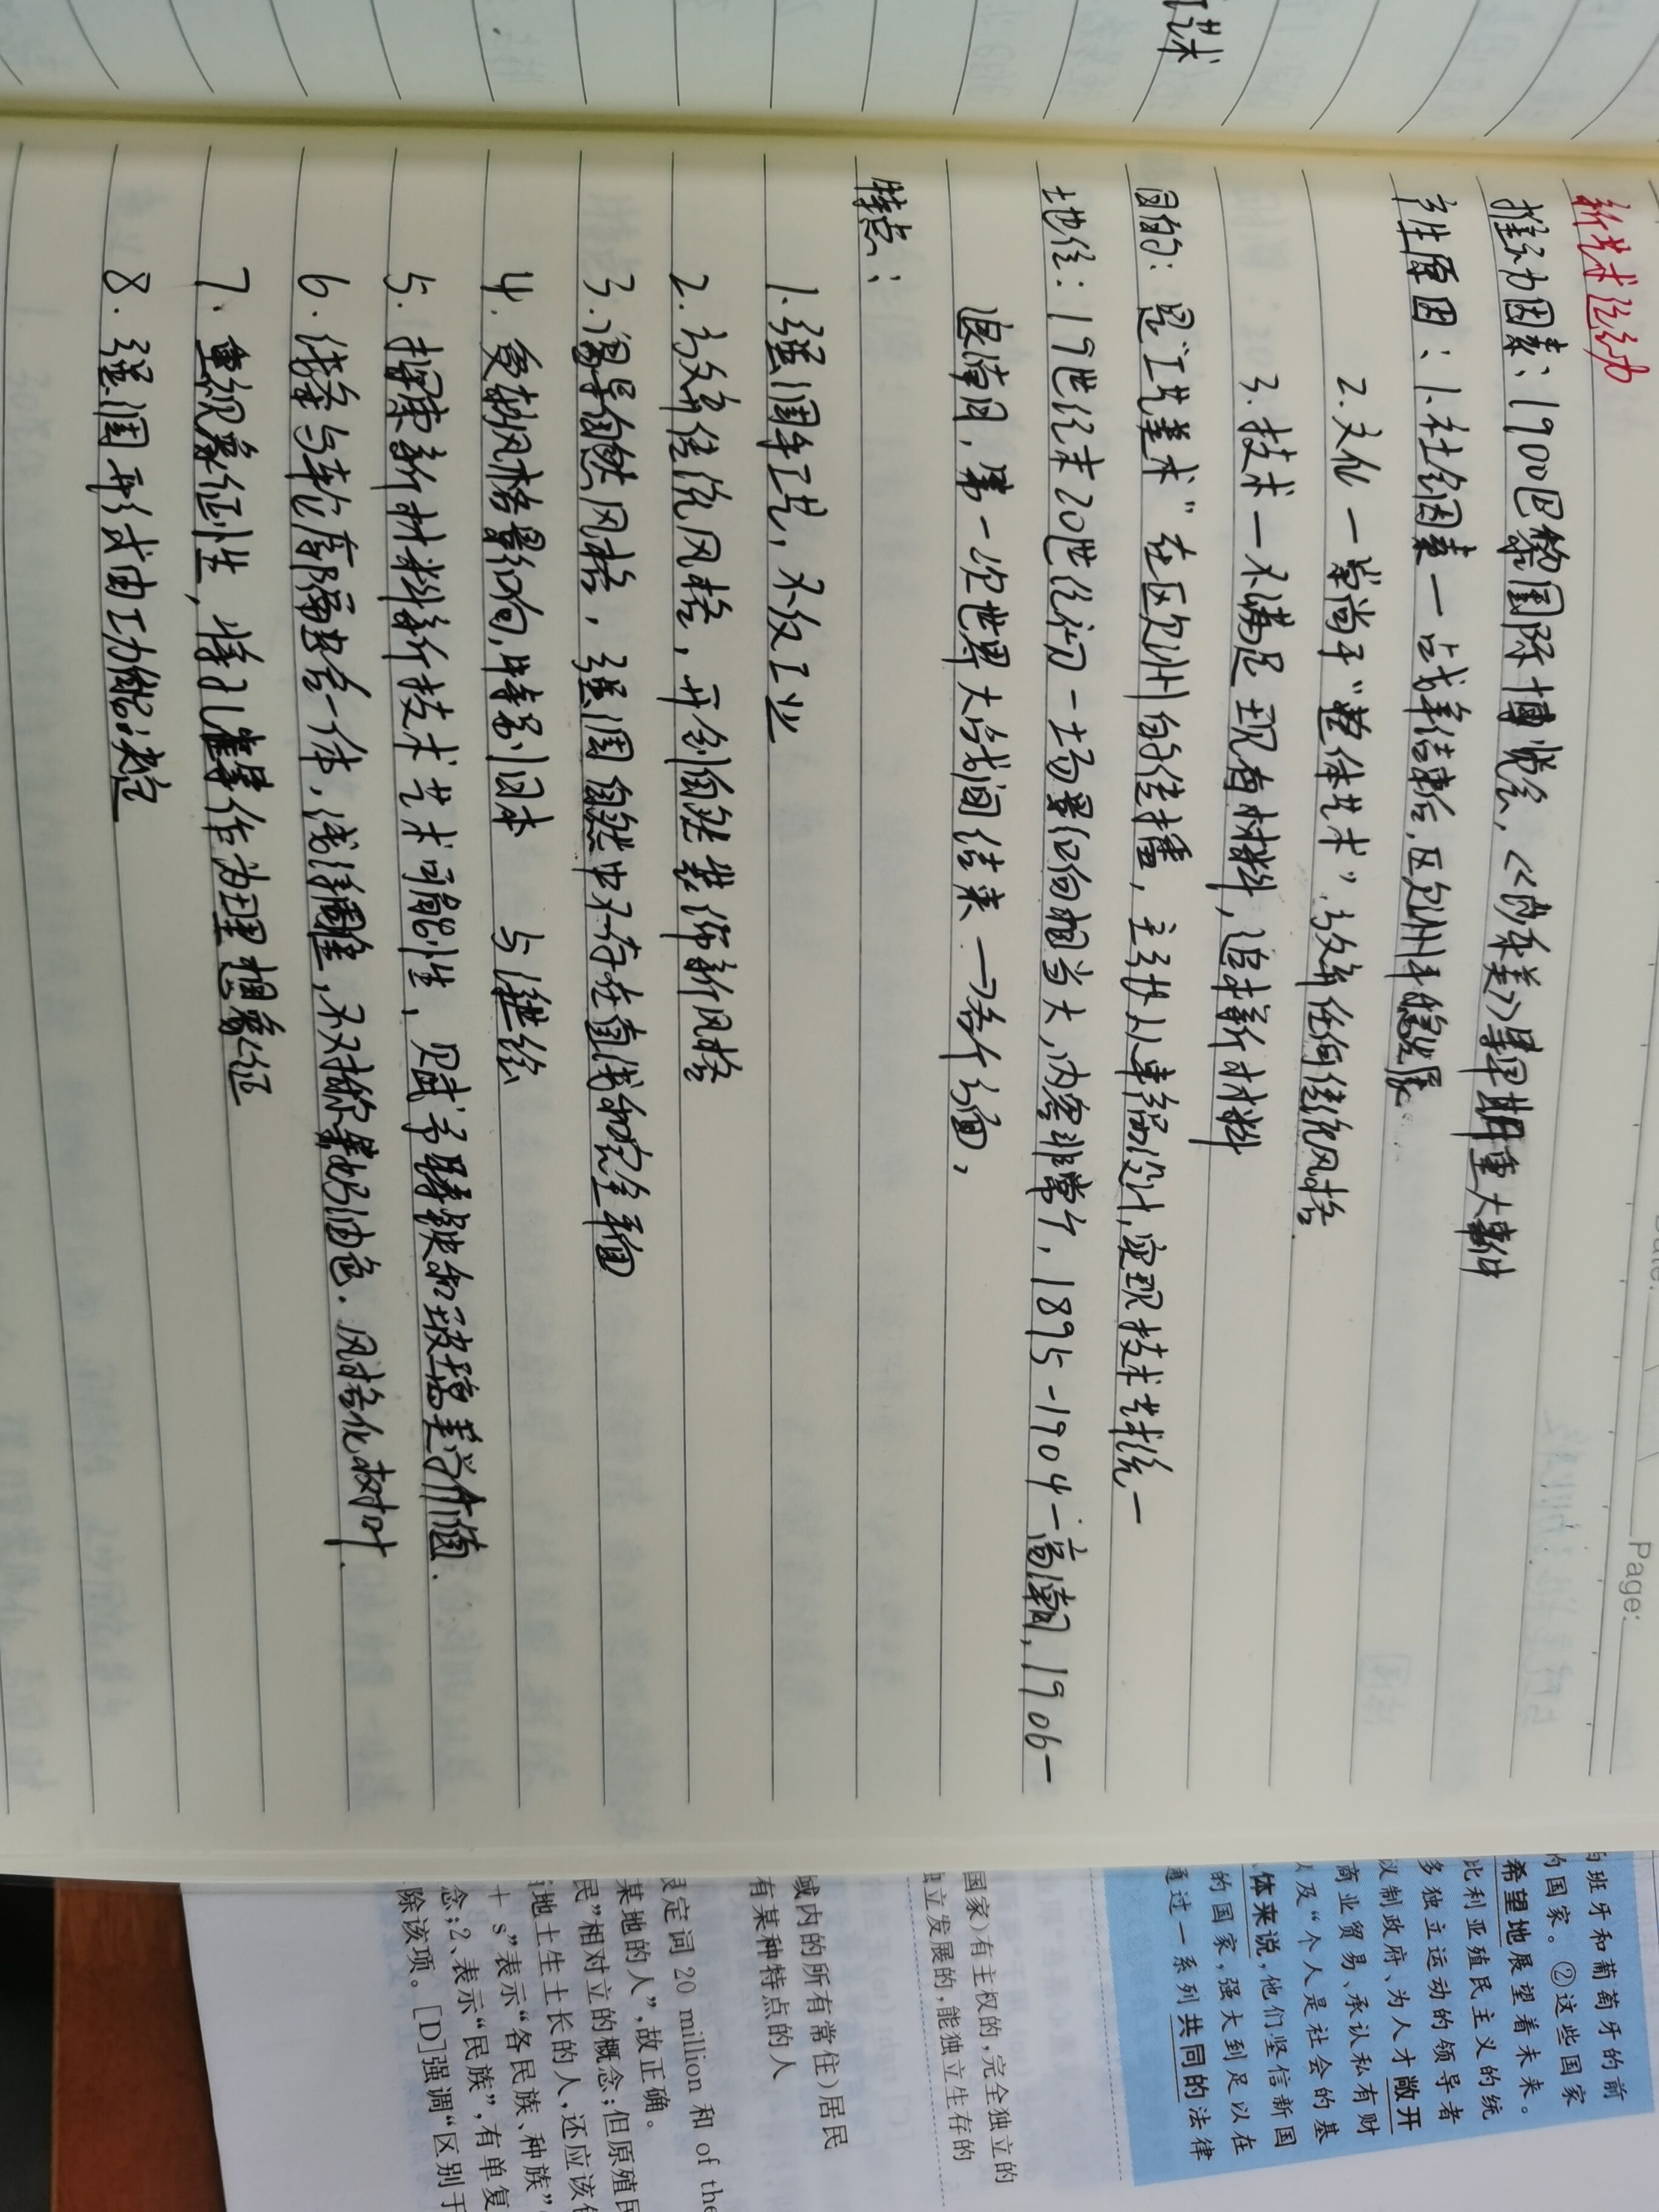 艺术
Page:
新艺术运动
推动因素：1900巴黎国际博览会，《莎乐美》是早期重大事件
产生原因：1.社会因素—占战争结束后，区欠州平稳发展
2.文化—崇尚于“整体艺术”，放弃任何传统风格.
3.技术—不满足现有材料，追求新材料
目的：是“工艺美术”在区欠州的传播，主张从事纯的设计，实现技术艺术统一
地位：19世纪末20世纪初一场影响相当大，内容非常广，1895-1904—高潮，1906—
退潮，第一次世界大战间结束→各个方面，
特点：
1.强调手工艺，不反工业
2.放弃传统风格，开创自然装饰新风格
3.倡导自然风格，强调自然中不存在直线和完全平面
4.受东方风格影响，特别日本 与浮世绘
5.探索新材料新技术艺术可能性，
6.
7.重视象征性，将孔雀等作为理想象征
8.强调形式由功能决定
的班牙和葡萄牙的前
的国家。②这些国家
希望地展望着未来。
比利亚殖民主义的统
多独立运动的领导者
议制政府、为人才敞开
商业贸易、承认私有财
及“个人是社会的基
体来说，他们坚信新国
的国家，强大到足以在
通过一系列共同的法律
国家)有主权的，完全独立的
独立发展的，能独立生存的
域内的所有常住)居民
有某种特点的人
限定词 20 million 和 of the
某地的人”，故正确。
民”相对立的概念；但原殖民
地土生土长的人，还应该
+ s”表示“各民族、种族”
念；2、表示“民族”，有单复
除该项。[D]强调“区别于